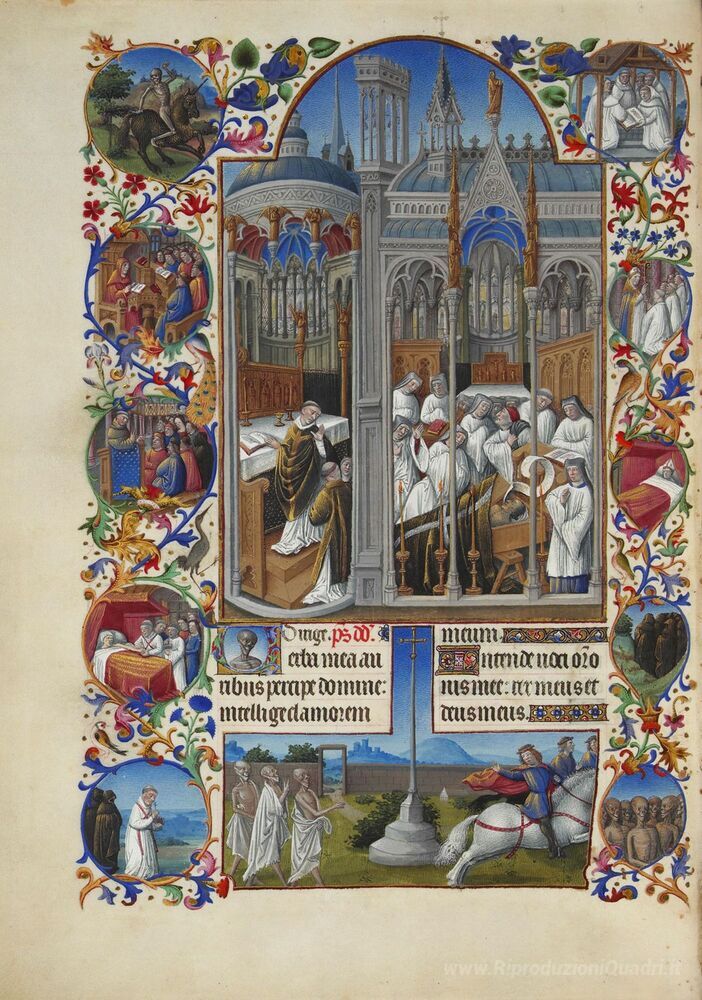 Dirige. p̄s dd̄.
Verba mea au
ribus percipe domine:
intellige clamorem
meum.
Intende uoci oro
nis mee: rex meus et
deus meus.
www.RiproduzioniQuadri.it